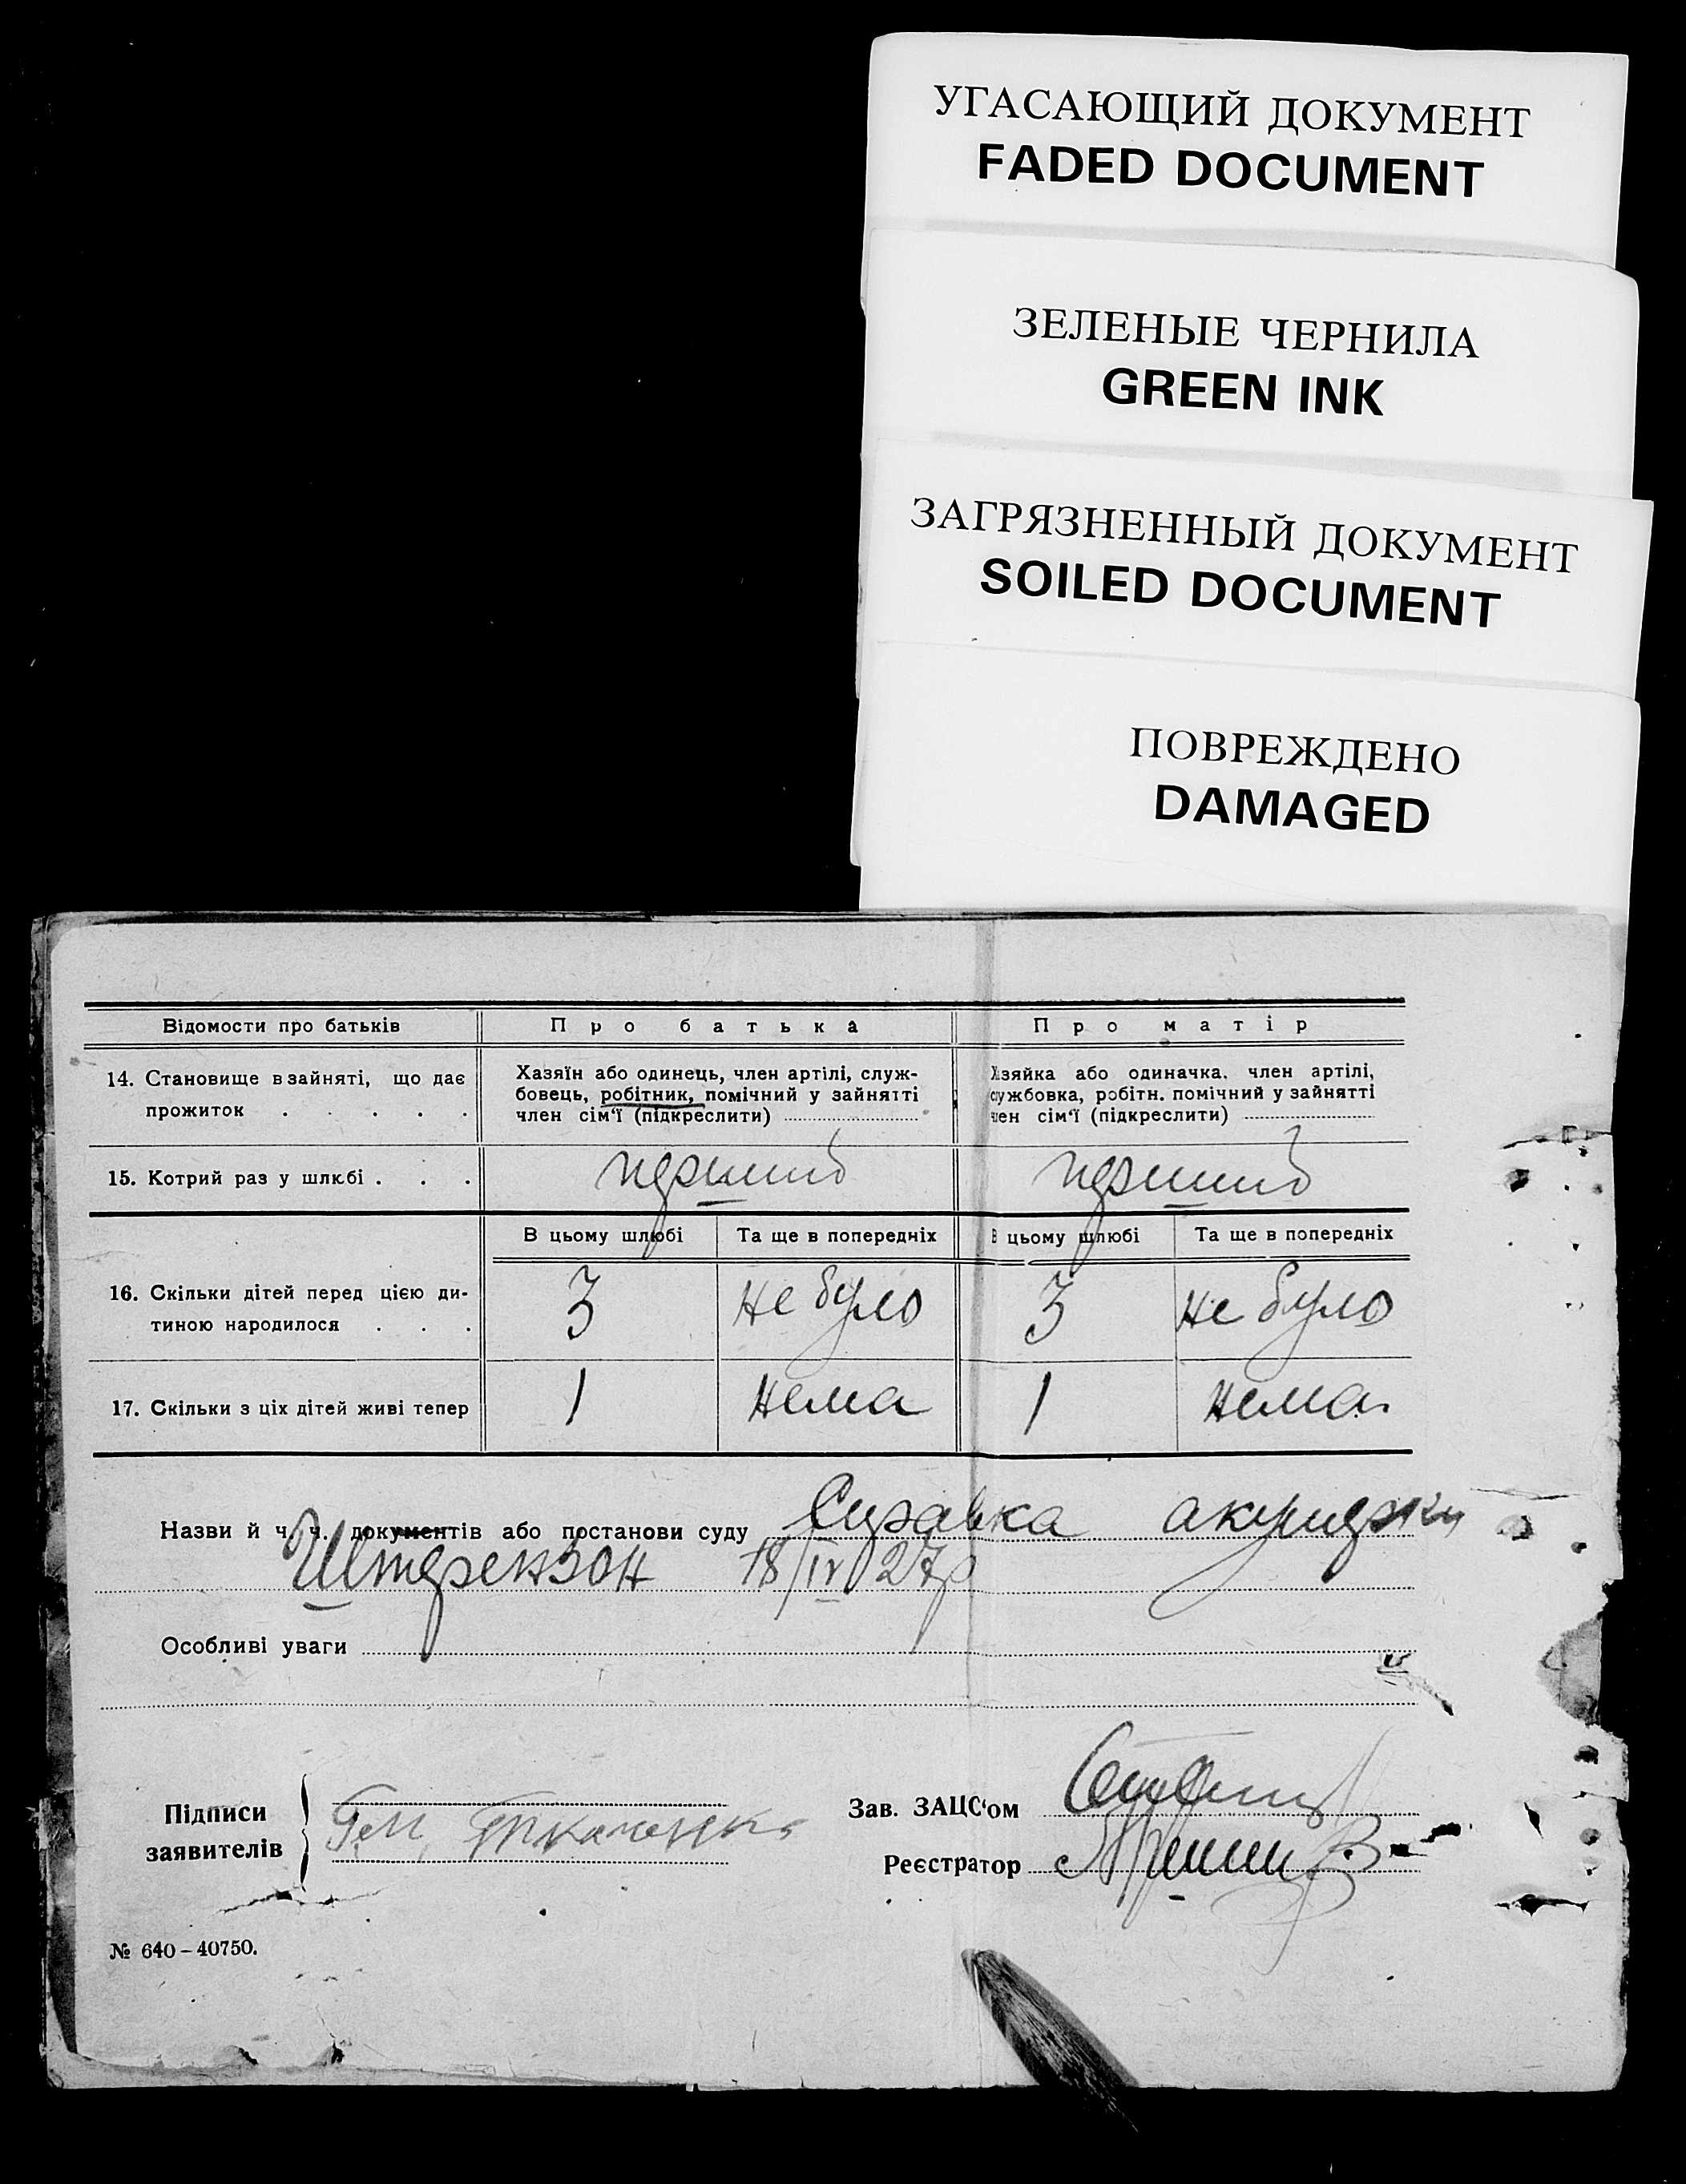 УГАСАЮЩИЙ ДОКУМЕНТ
FADED DOCUMENT
ЗЕЛЕНЫЕ ЧЕРНИЛА
GREEN INK
ЗАГРЯЗНЕННЫЙ ДОКУМЕНТ
SOILED DOCUMENT
ПОВРЕЖДЕНО
DAMAGED
Відомости про батьків Про батька Про матір
14. Становище в зайняті, що дає прожиток . . . . .
Хазяїн або одинець, член артілі, служ-
бовець, робітник, помічний у зайнятті
член сім‘ї (підкреслити)
зяйка або одиначка, член артілі,
ужбовка, робітн. помічний у зайнятті
ен сім‘ї (підкреслити)
15. Котрий раз у шлюбі . . . перший перший
В цьому шлюбі Та ще в попередніх цьому шлюбі Та ще в попередніх
16. Скільки дітей перед цією ди-
тиною народилося . . . 3 не було 3 не було
17. Скільки з ціх дітей живі тепер 1 нема 1 нема
Назви й ч. ч. документів або постанови суду Справка акушерки
Штерензон 18/IV 27р
Особливі уваги
Підписи
заявителів
Ткаченко
Зав. ЗАЦС‘ом
Реєстратор
№ 640–40750.